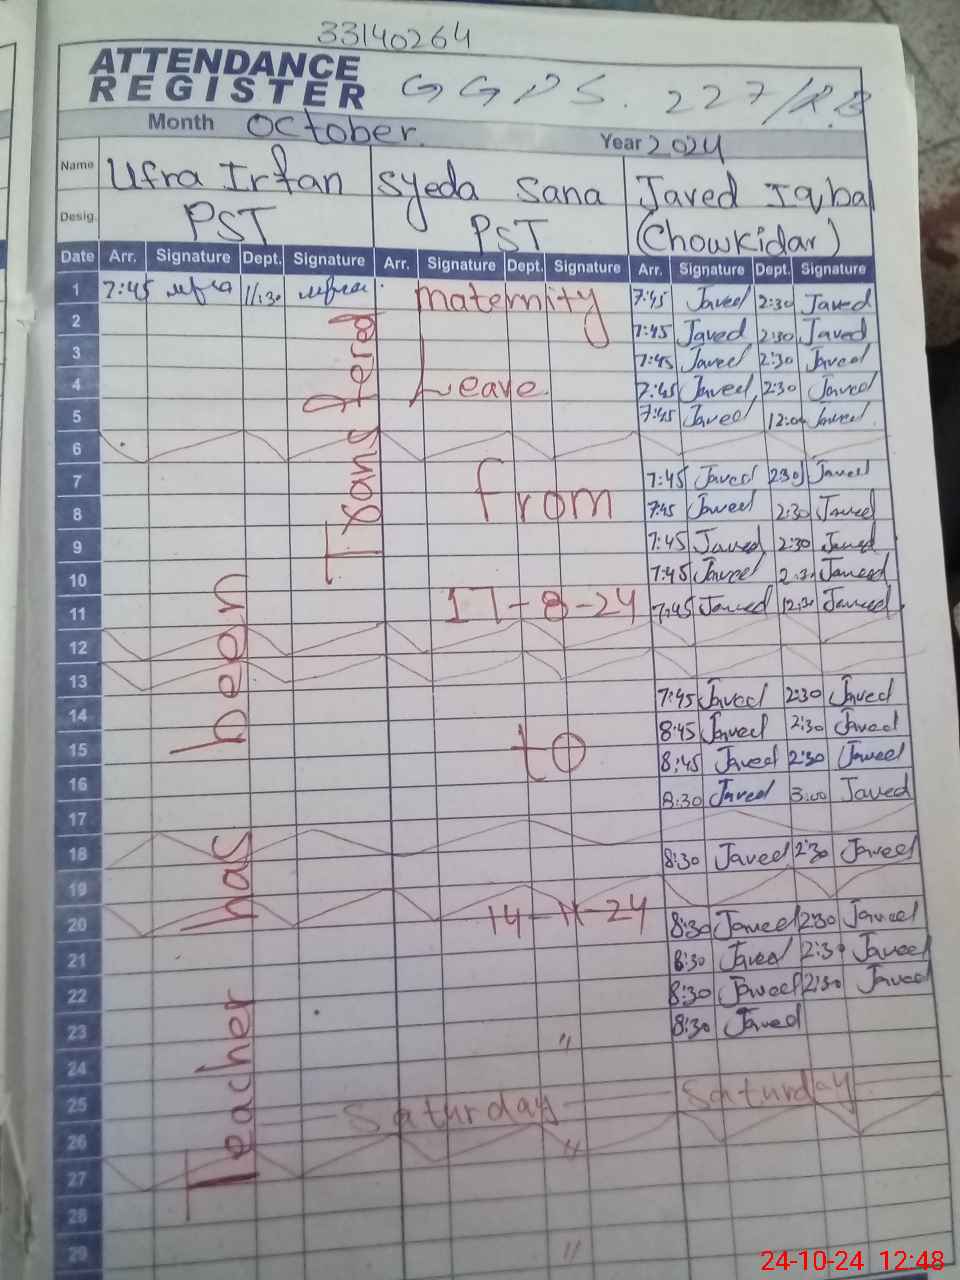 33140264
ATTENDANCE
REGISTER GGPS. 227/R.B
Month October. Year 2024
Name Ufra Irfan Syeda Sana Javed Iqbal
Desig. PST PST (Chowkidar)
Date Arr. Signature Dept. Signature Arr. Signature Dept. Signature Arr. Signature Dept. Signature
1 7:45 ufra 11:30 ufra. maternity 7:45 Javed 2:30 Javed
2 7:45 Javed 2:30 Javed
3 7:45 Javed 2:30 Javed
4 Leave 7:45 Javed 2:30 Javed
5 7:45 Javed 12:00 Javed
6
7 from 7:45 Javed 2:30 Javed
8 7:45 Javed 2:30 Javed
9 7:45 Javed 2:30 Javed
10 7:45 Javed 2:30 Javed
11 17-8-24 7:45 Javed 12:30 Javed
12
13
14 7:45 Javed 2:30 Javed
15 to 8:45 Javed 2:30 Javed
16 8:45 Javed 2:30 Javed
17 8:30 Javed 3:00 Javed
18
19 8:30 Javed 2:30 Javed
20
21 14-11-24 8:30 Javed 2:30 Javed
22 8:30 Javed 2:30 Javed
23 8:30 Javed 2:30 Javed
24 8:30 Javed
25
26 Saturday Saturday
27
28
29
Teacher has been Transfered
24-10-24 12:48